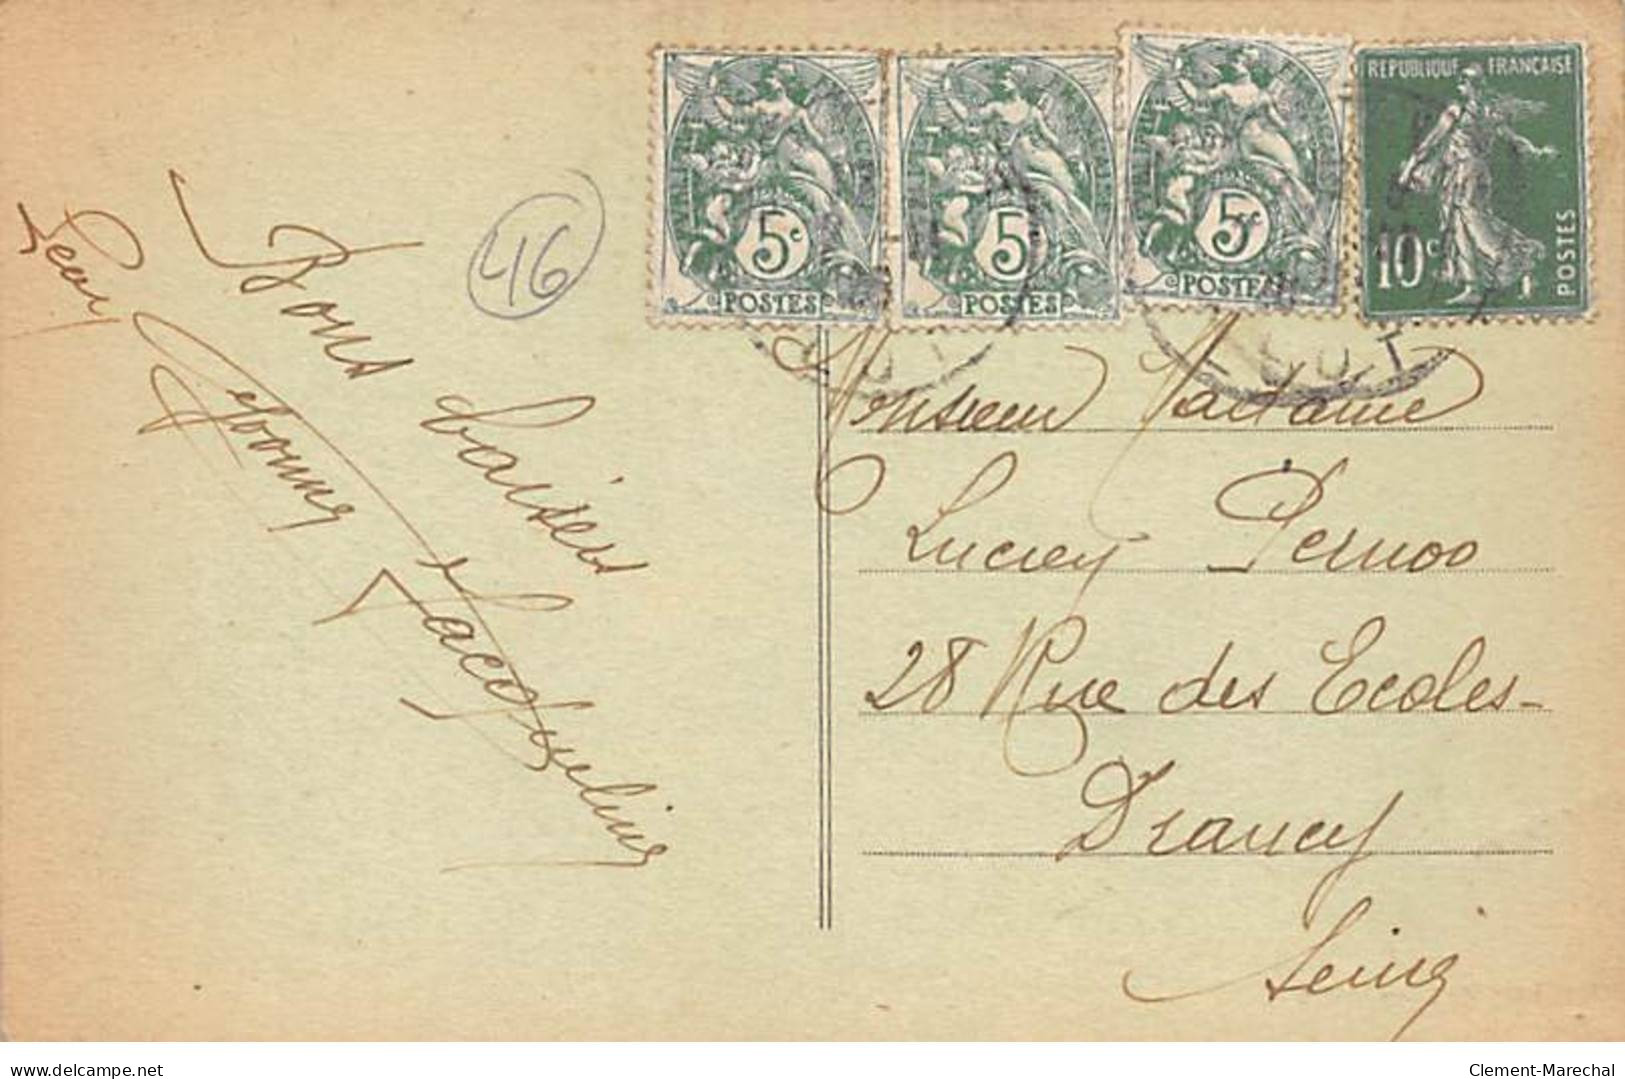 Bons baisers
Jacqueline
Yvonne
46
5c
POSTES
5c
POSTES
5c
POSTES
REPUBLIQUE FRANÇAISE
10c
POSTES
LOT
Monsieur Madame
Lucien Pernoo
28 Rue des Ecoles-
Drancy
Seine
delcampe.net
Clement-Marechal